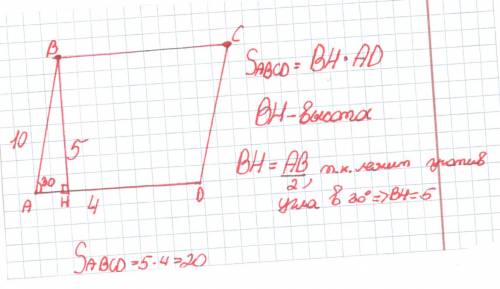 B
C
10
5
30
A
H
4
D
S ABCD = BH · AD
BH - высота
BH = AB/2, т.к. лежит против
угла в 30° => BH = 5
S ABCD = 5 · 4 = 20